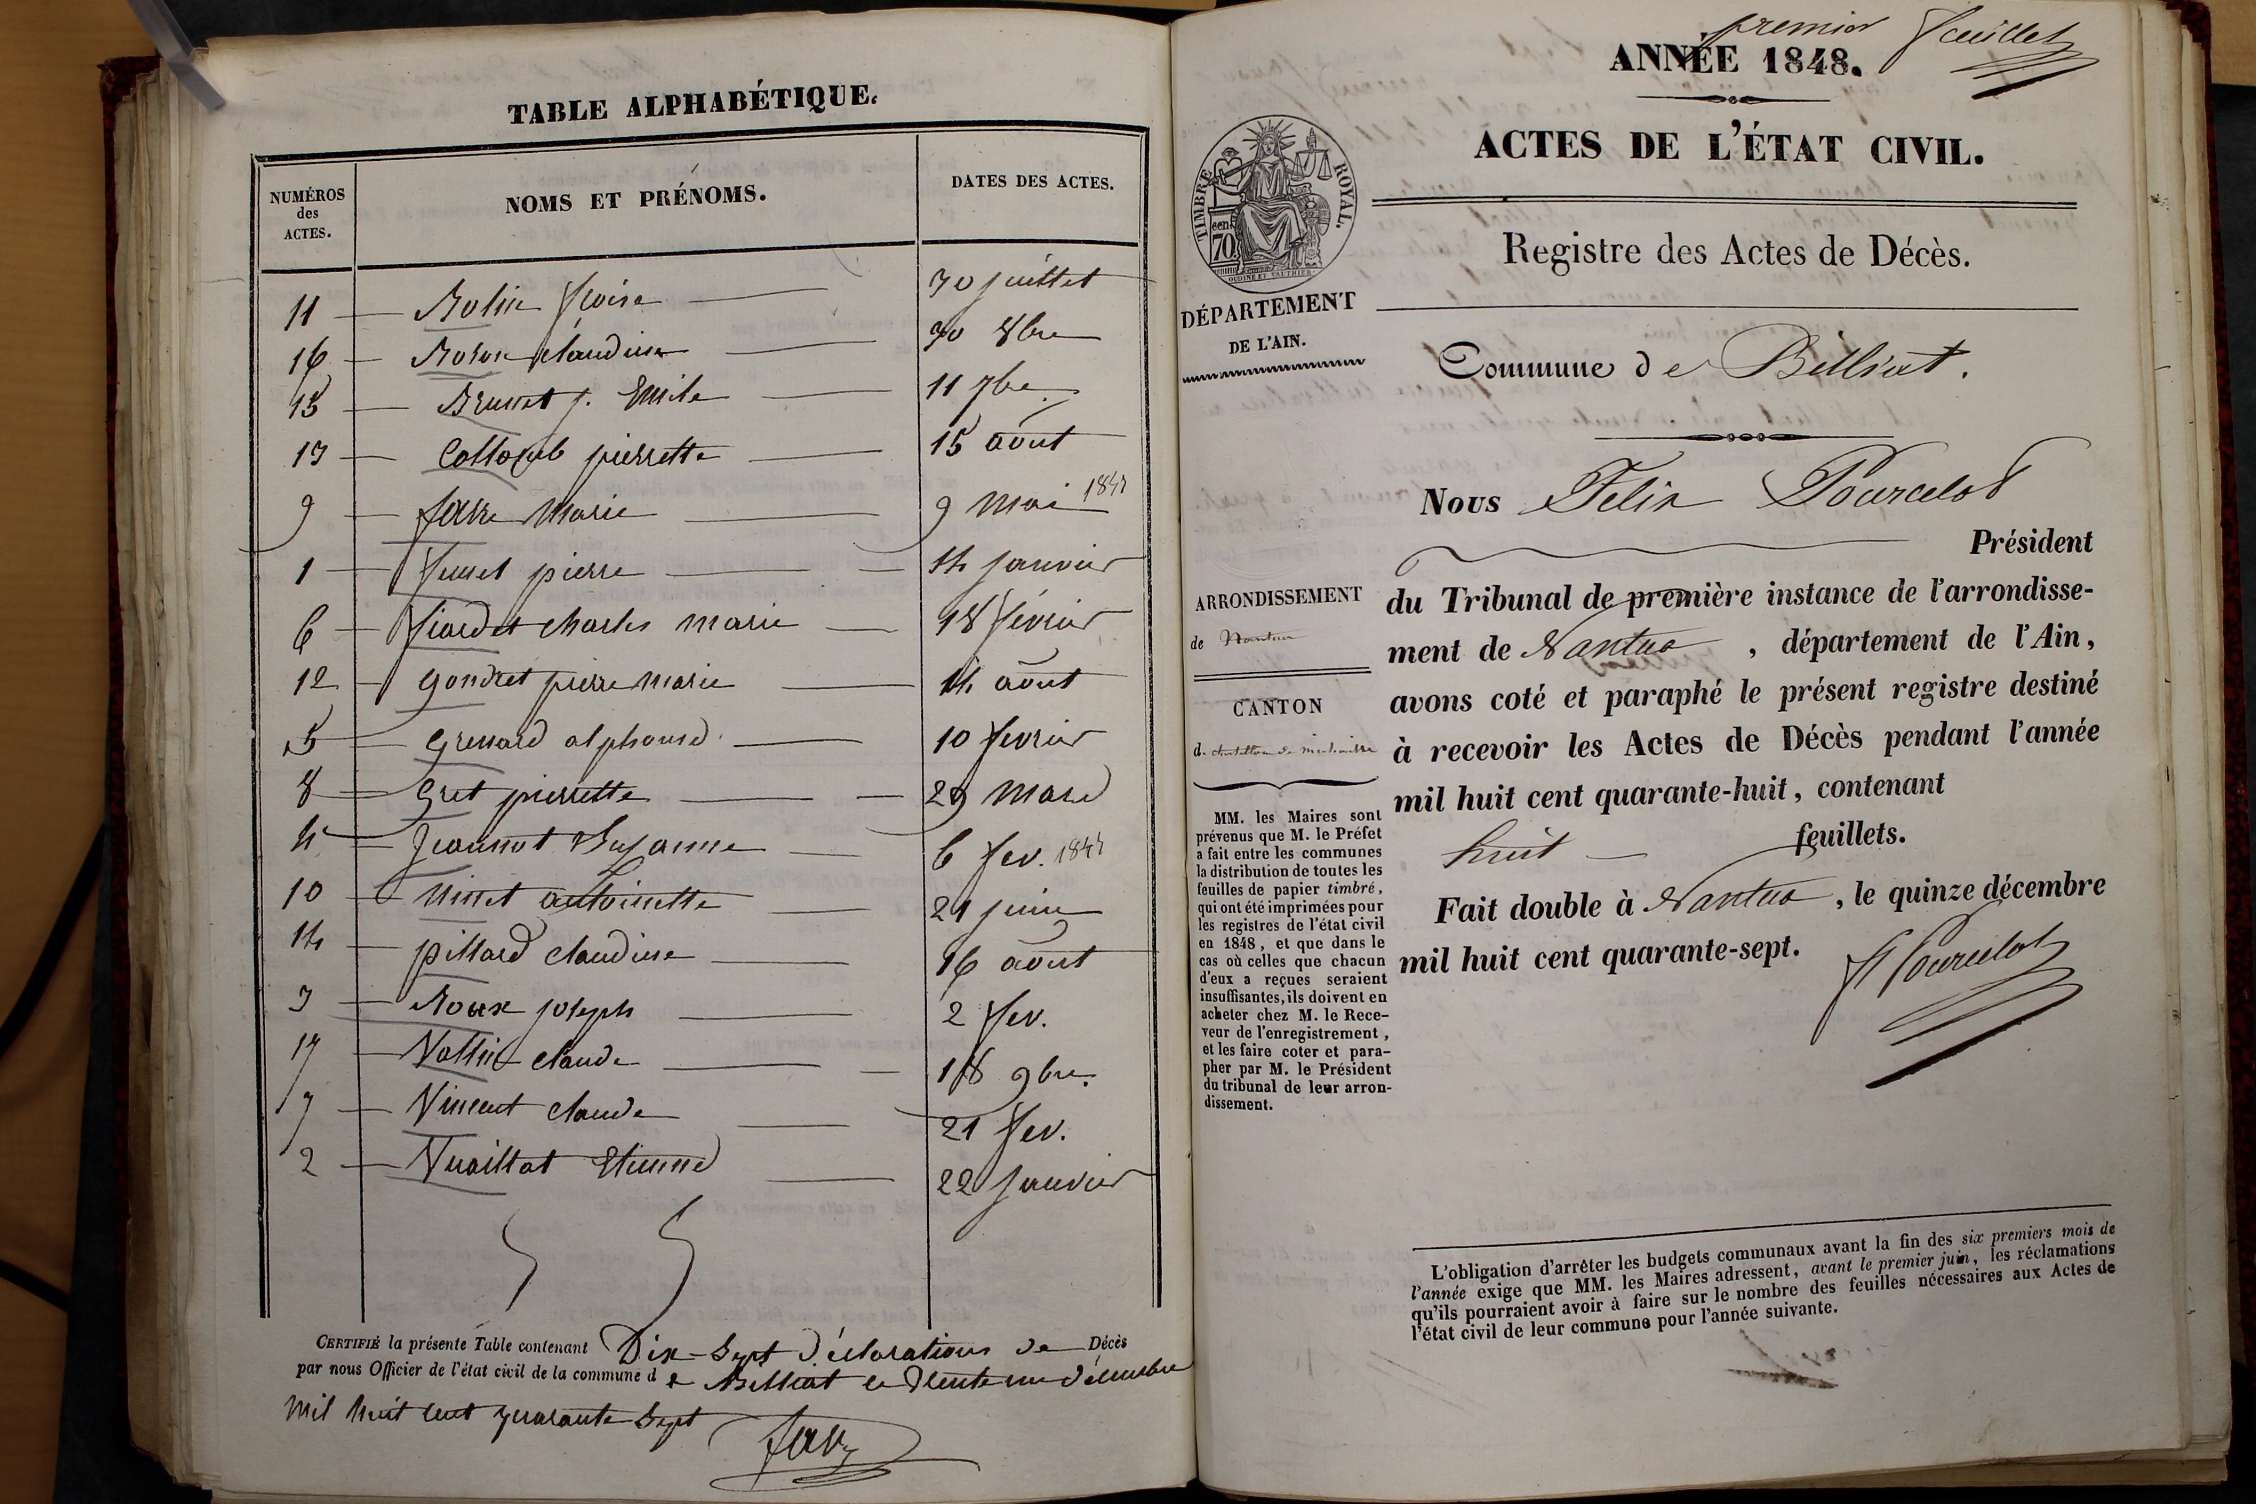 TABLE ALPHABÉTIQUE.
NUMÉROS des ACTES.
NOMS ET PRÉNOMS.
DATES DES ACTES.
11 — — 30 juillet
16 — claudine — 30 8bre
15 — Brunet j. Emile — 11 7bre
13 — Collomb pierrette — 15 août
9 — favre Marie — 9 mai 1847
1 — pierre — 14 janvier
6 — charles marie — 18 février
12 — Gondret pierre marie — 14 août
5 — alphonse — 10 fevrier
8 — Gret pierrette — 29 Mars
4 — Jeannot Suzanne — 6 fev. 1847
10 — Ninet antoinette — 21 juin
14 — pillard claudine — 16 août
3 — Roux joseph — 2 fev.
17 — Vallin claude — 18 9bre.
7 — Vincent claude — 21 fev.
2 — Vuaillat Etienne — 22 janvier
CERTIFIÉ la présente Table contenant Dix-Sept Déclarations de Décès
par nous Officier de l'état civil de la commune de Billiat le trente un décembre
mil huit cent quarante Sept
premier feuillet
ANNÉE 1848.
ACTES DE L'ÉTAT CIVIL.
Registre des Actes de Décès.
TIMBRE ROYAL.
cen. 70.
OUDINÉ ET GAUTHIER
DÉPARTEMENT
DE L'AIN.
Commune de Billiat.
Nous Felix Pourcelot
Président
du Tribunal de première instance de l'arrondisse-
ment de Nantua, département de l'Ain,
avons coté et paraphé le présent registre destiné
à recevoir les Actes de Décès pendant l'année
mil huit cent quarante-huit, contenant
huit — feuillets.
Fait double à Nantua, le quinze décembre
mil huit cent quarante-sept.
Pourcelot
ARRONDISSEMENT
de Nantua
CANTON
d. chatillon de michaille
MM. les Maires sont
prévenus que M. le Préfet
a fait entre les communes
la distribution de toutes les
feuilles de papier timbré,
qui ont été imprimées pour
les registres de l'état civil
en 1848, et que dans le
cas où celles que chacun
d'eux a reçues seraient
insuffisantes, ils doivent en
acheter chez M. le Rece-
veur de l'enregistrement,
et les faire coter et para-
pher par M. le Président
du tribunal de leur arron-
dissement.
L'obligation d'arrêter les budgets communaux avant la fin des six premiers mois de
l'année exige que MM. les Maires adressent, avant le premier juin, les réclamations
qu'ils pourraient avoir à faire sur le nombre des feuilles nécessaires aux Actes de
l'état civil de leur commune pour l'année suivante.